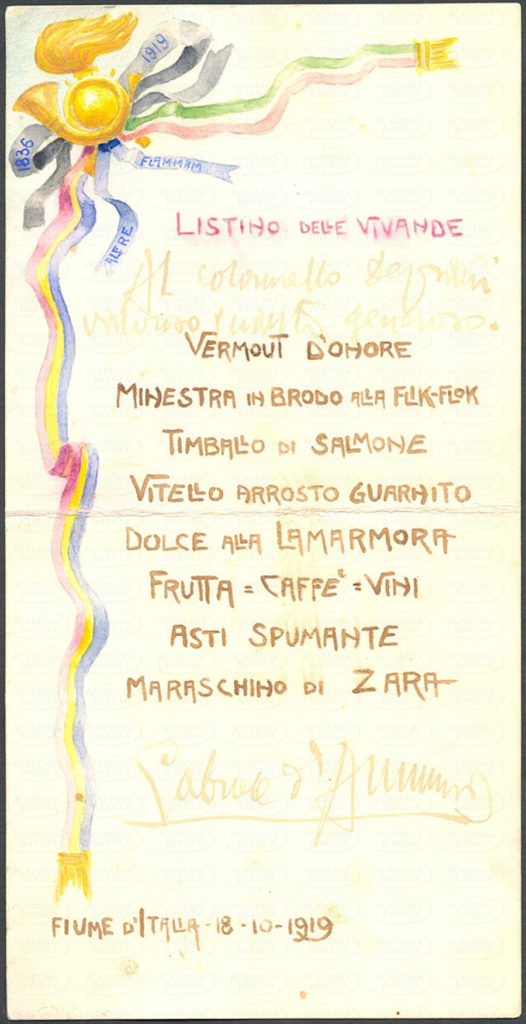 1919
1836
FLAMMAM
ALERE
LISTINO DELLE VIVANDE
Al colonnello
generoso.
VERMOUT D'ONORE
MINESTRA IN BRODO ALLA FLIK-FLOK
TIMBALLO DI SALMONE
VITELLO ARROSTO GUARNITO
DOLCE ALLA LAMARMORA
FRUTTA = CAFFE' = VINI
ASTI SPUMANTE
MARASCHINO DI ZARA
Gabriele d'Annunzio
FIUME D'ITALIA - 18 - 10 - 1919